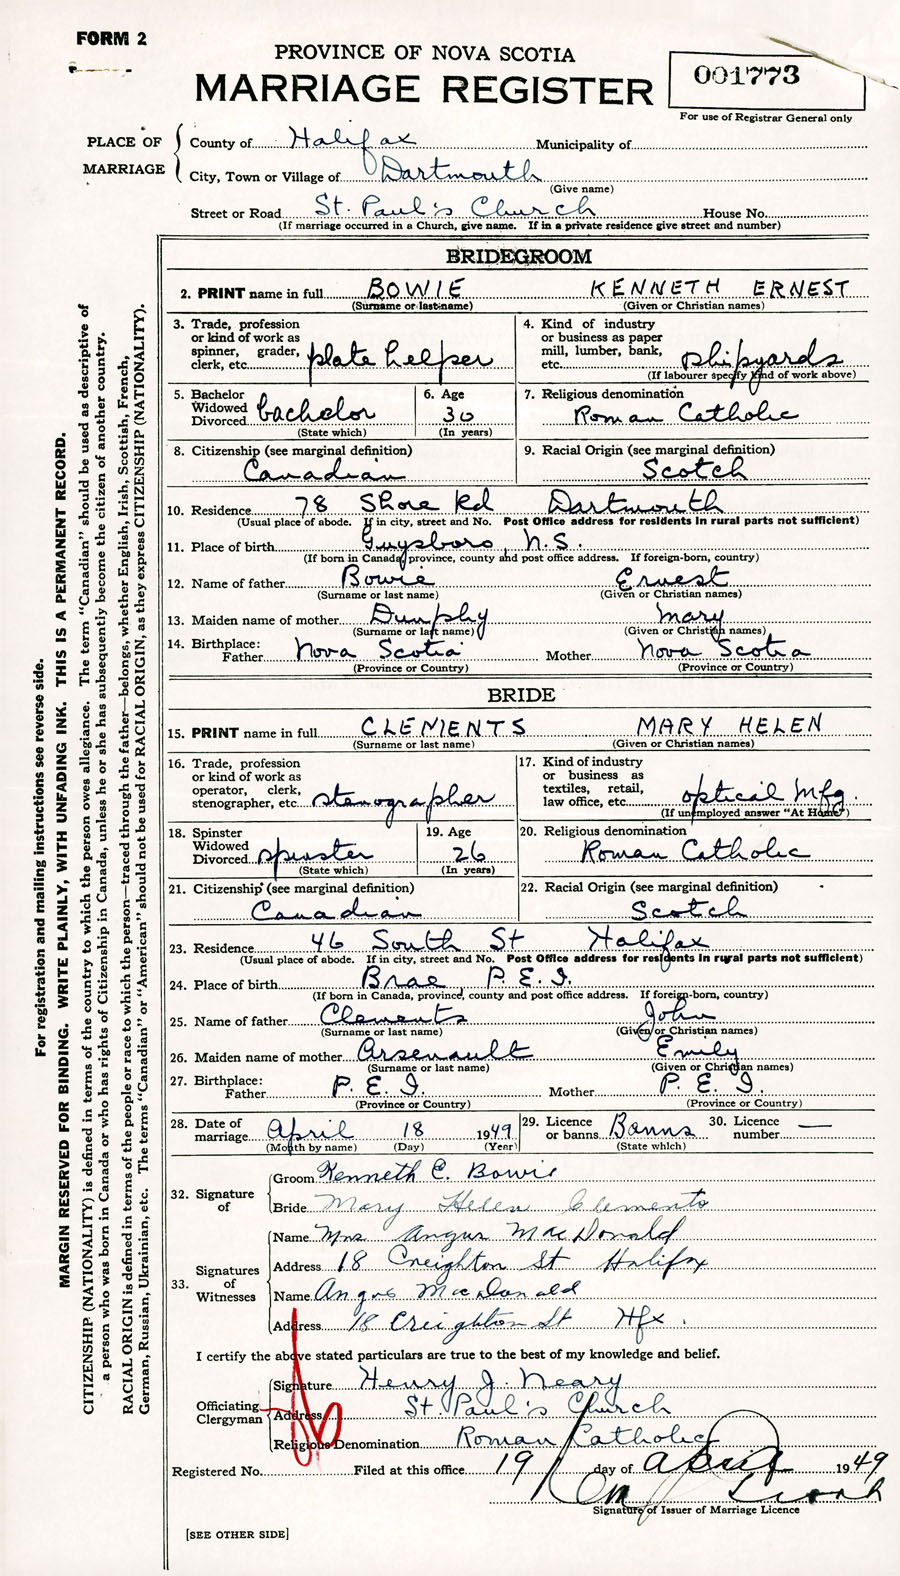 FORM 2
PROVINCE OF NOVA SCOTIA
MARRIAGE REGISTER
001773
For use of Registrar General only
PLACE OF MARRIAGE
County of Halifax Municipality of
City, Town or Village of Dartmouth
(Give name)
Street or Road St. Paul's Church House No.
(If marriage occurred in a Church, give name. If in a private residence give street and number)
BRIDEGROOM
2. PRINT name in full BOWIE KENNETH ERNEST
(Surname or last name) (Given or Christian names)
3. Trade, profession or kind of work as spinner, grader, clerk, etc. plate helper
4. Kind of industry or business as paper mill, lumber, bank, etc. shipyards
(If labourer specify kind of work above)
5. Bachelor Widowed Divorced bachelor
(State which)
6. Age 30
(In years)
7. Religious denomination
Roman Catholic
8. Citizenship (see marginal definition)
Canadian
9. Racial Origin (see marginal definition)
Scotch
10. Residence 78 Shore Rd Dartmouth
(Usual place of abode. If in city, street and No. Post Office address for residents in rural parts not sufficient)
11. Place of birth Guysboro, N.S.
(If born in Canada, province, county and post office address. If foreign-born, country)
12. Name of father Bowie Ernest
(Surname or last name) (Given or Christian names)
13. Maiden name of mother Dunphy Mary
(Surname or last name) (Given or Christian names)
14. Birthplace:
Father Nova Scotia Mother Nova Scotia
(Province or Country) (Province or Country)
BRIDE
15. PRINT name in full CLEMENTS MARY HELEN
(Surname or last name) (Given or Christian names)
16. Trade, profession or kind of work as operator, clerk, stenographer, etc. stenographer
17. Kind of industry or business as textiles, retail, law office, etc. optical Mfg.
(If unemployed answer "At Home")
18. Spinster Widowed Divorced spinster
(State which)
19. Age 26
(In years)
20. Religious denomination
Roman Catholic
21. Citizenship (see marginal definition)
Canadian
22. Racial Origin (see marginal definition)
Scotch
23. Residence 46 South St Halifax
(Usual place of abode. If in city, street and No. Post Office address for residents in rural parts not sufficient)
24. Place of birth Brae, P.E.I.
(If born in Canada, province, county and post office address. If foreign-born, country)
25. Name of father Clements John
(Surname or last name) (Given or Christian names)
26. Maiden name of mother Arsenault Emily
(Surname or last name) (Given or Christian names)
27. Birthplace:
Father P.E.I. Mother P.E.I.
(Province or Country) (Province or Country)
28. Date of marriage April 18 1949
(Month by name) (Day) (Year)
29. Licence or banns Banns
(State which)
30. Licence number —
32. Signature of
Groom Kenneth E. Bowie
Bride Mary Helen Clements
33. Signatures of Witnesses
Name Mrs Angus MacDonald
Address 18 Creighton St Halifax
Name Angus MacDonald
Address 18 Creighton St Hfx.
I certify the above stated particulars are true to the best of my knowledge and belief.
Officiating Clergyman
Signature Henry J. Neary
Address St. Paul's Church
Religious Denomination Roman Catholic
Registered No. Filed at this office 19 day of April 1949
Signature of Issuer of Marriage Licence
[SEE OTHER SIDE]
For registration and mailing instructions see reverse side.
MARGIN RESERVED FOR BINDING. WRITE PLAINLY, WITH UNFADING INK. THIS IS A PERMANENT RECORD.
CITIZENSHIP (NATIONALITY) is defined in terms of the country to which the person owes allegiance. The term "Canadian" should be used as descriptive of
a person who was born in Canada or who has rights of Citizenship in Canada, unless he or she has subsequently become the citizen of another country.
RACIAL ORIGIN is defined in terms of the people or race to which the person—traced through the father—belongs, whether English, Irish, Scottish, French,
German, Russian, Ukrainian, etc. The terms "Canadian" or "American" should not be used for RACIAL ORIGIN, as they express CITIZENSHIP (NATIONALITY).